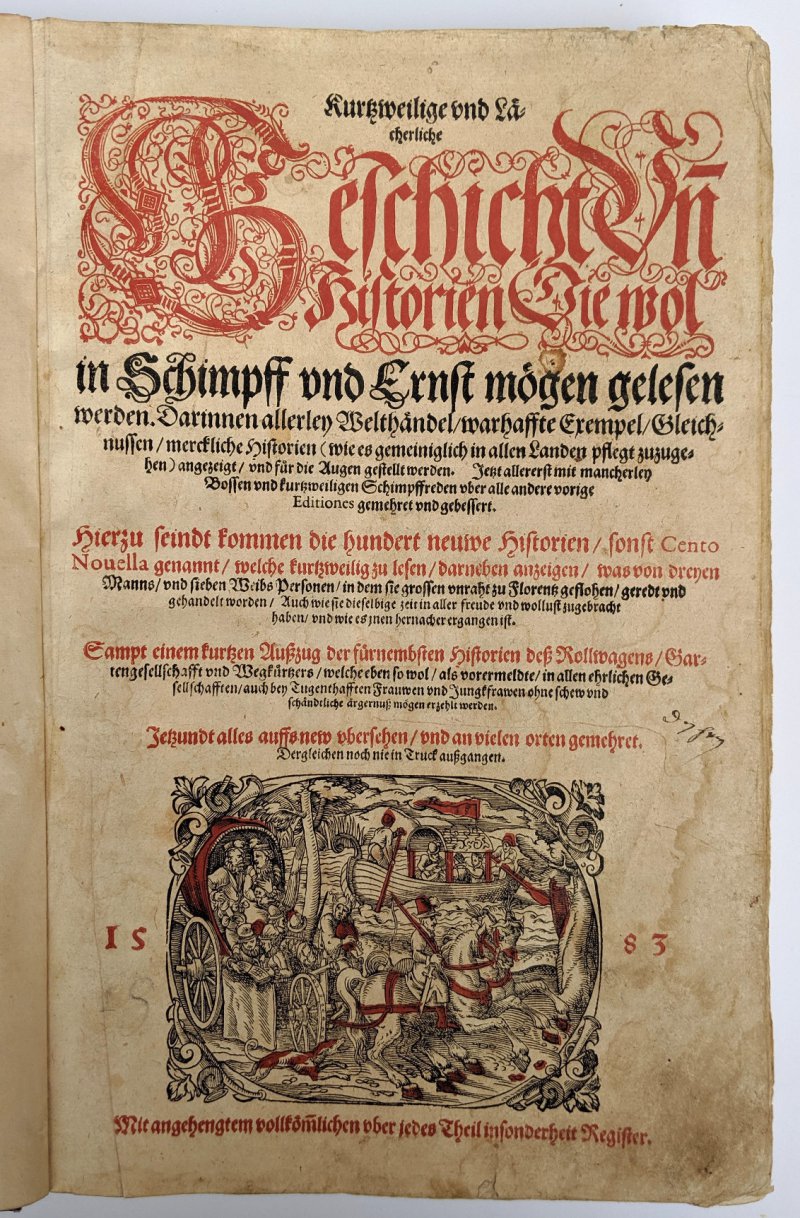 Kurtzweilige vnd Lä-
cherliche
Geschicht Vn̄
Historien Die wol
in Schimpff vnd Ernst mögen gelesen
werden. Darinnen allerley Welthändel/warhaffte Exempel/Gleich-
nussen/merckliche Historien (wie es gemeiniglich in allen Landen pflegt zuzuge-
hen) angezeigt/vnd für die Augen gestellt werden. Jetzt allererst mit mancherley
Bossen vnd kurtzweiligen Schimpffreden vber alle andere vorige
Editiones gemehret vnd gebessert.
Hierzu seindt kommen die hundert neuwe Historien/sonst Cento
Nouella genannt/welche kurtzweilig zu lesen/darneben anzeigen/was von dreyen
Manns/vnd sieben Weibs Personen/in dem sie grossen vnraht zu Florentz geflohen/geredt vnd
gehandelt worden/Auch wie sie dieselbige zeit in aller freude vnd wollust zugebracht
haben/vnd wie es jnen hernacher ergangen ist.
Sampt einem kurtzen Außzug der fürnembsten Historien deß Rollwagens/Gar-
tengesellschafft vnd Wegkürtzers/welche eben so wol/als vorermeldte/in allen ehrlichen Ge-
sellschafften/auch bey Tugenthafften Frauwen vnd Jungkfrawen ohne schew vnd
schändtliche ärgernuß mögen erzehlt werden.
Jetzundt alles auffs new vbersehen/vnd an vielen orten gemehret.
Dergleichen noch nie in Truck außgangen.
15 83
Mit angehengtem vollköm̄lichen vber jedes Theil insonderheit Register.